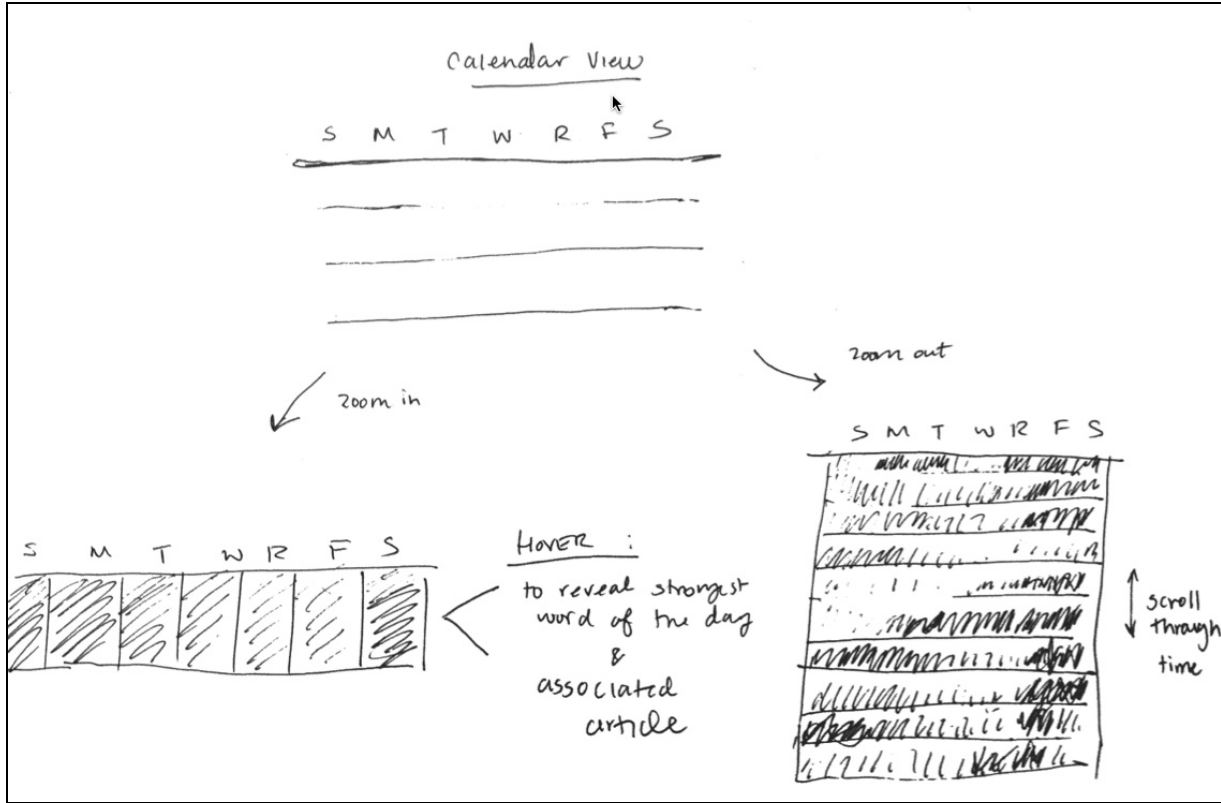 Calendar View
S M T W R F S
zoom in
zoom out
S M T W R F S
HOVER :
to reveal strongest
word of the day
&
associated
article
S M T W R F S
scroll
through
time